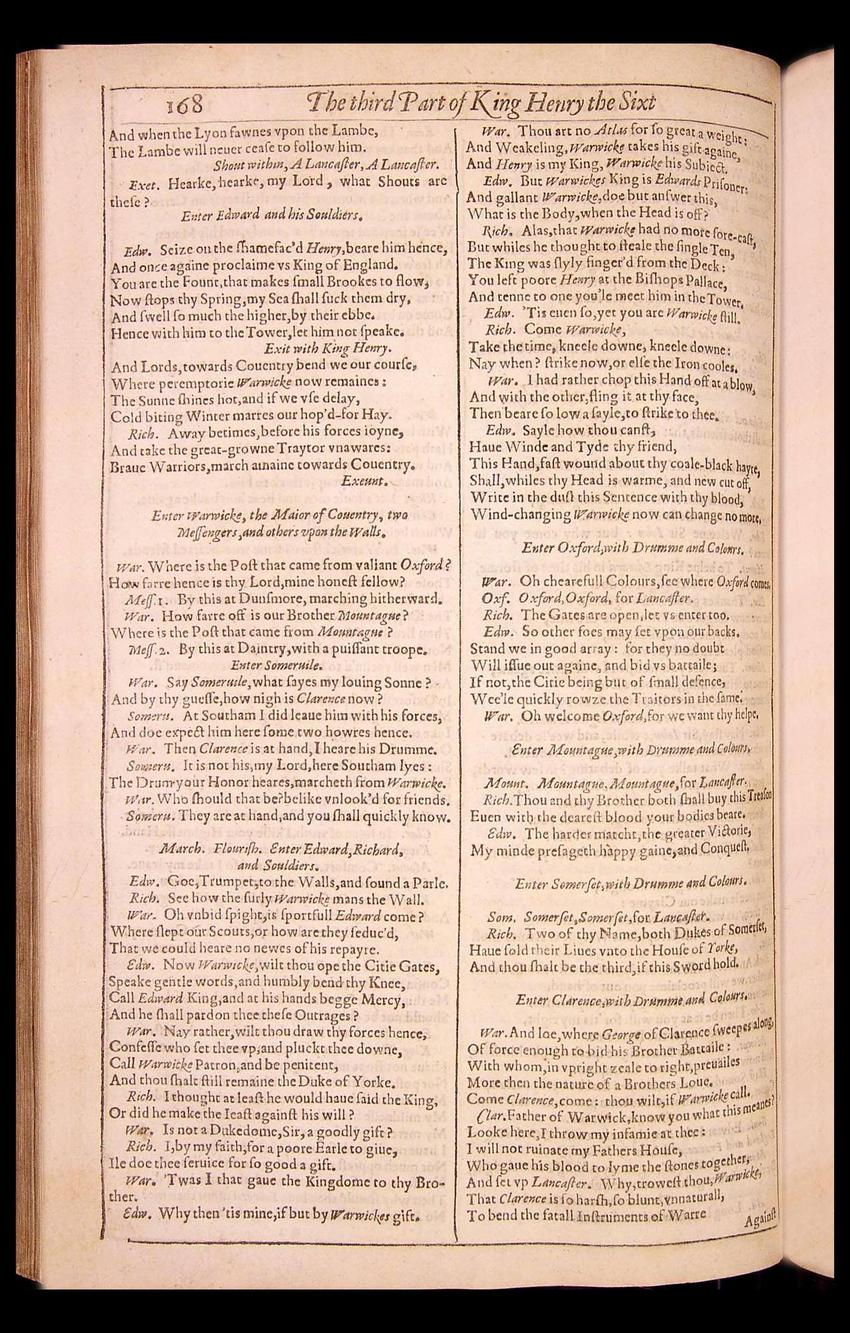 168
The third Part of King Henry the Sixt
And when the Lyon fawnes vpon the Lambe,
The Lambe will neuer ceaſe to follow him.
Shout within, A Lancaſter, A Lancaſter.
Exet. Hearke, hearke, my Lord, what Shouts are
theſe?
Enter Edward and his Souldiers.
Edw. Seize on the ſhamefac'd Henry, beare him hence,
And once againe proclaime vs King of England.
You are the Fount, that makes ſmall Brookes to flow,
Now ſtops thy Spring, my Sea ſhall ſuck them dry,
And ſwell ſo much the higher, by their ebbe.
Hence with him to the Tower, let him not ſpeake.
Exit with King Henry.
And Lords, towards Couentry bend we our courſe,
Where peremptorie Warwicke now remaines:
The Sunne ſhines hot, and if we vſe delay,
Cold biting Winter marres our hop'd-for Hay.
Rich. Away betimes, before his forces ioyne,
And take the great-growne Traytor vnawares:
Braue Warriors, march amaine towards Couentry.
Exeunt.
Enter Warwicke, the Maior of Couentry, two
Meſſengers, and others vpon the Walls.
War. Where is the Poſt that came from valiant Oxford?
How farre hence is thy Lord, mine honeſt fellow?
Meſſ. 1. By this at Dunſmore, marching hitherward.
War. How farre off is our Brother Mountague?
Where is the Poſt that came from Mountague?
Meſſ. 2. By this at Daintry, with a puiſſant troope.
Enter Someruile.
War. Say Someruile, what ſayes my louing Sonne?
And by thy gueſſe, how nigh is Clarence now?
Someru. At Southam I did leaue him with his forces,
And doe expect him here ſome two howres hence.
War. Then Clarence is at hand, I heare his Drumme.
Someru. It is not his, my Lord, here Southam lyes:
The Drum your Honor heares, marcheth from Warwicke.
War. Who ſhould that be? belike vnlook'd for friends.
Someru. They are at hand, and you ſhall quickly know.
March. Flouriſh. Enter Edward, Richard,
and Souldiers.
Edw. Goe, Trumpet, to the Walls, and ſound a Parle.
Rich. See how the ſurly Warwicke mans the Wall.
War. Oh vnbid ſpight, is ſportfull Edward come?
Where ſlept our Scouts, or how are they ſeduc'd,
That we could heare no newes of his repayre.
Edw. Now Warwicke, wilt thou ope the Citie Gates,
Speake gentle words, and humbly bend thy Knee,
Call Edward King, and at his hands begge Mercy,
And he ſhall pardon thee theſe Outrages?
War. Nay rather, wilt thou draw thy forces hence,
Confeſſe who ſet thee vp, and pluckt thee downe,
Call Warwicke Patron, and be penitent,
And thou ſhalt ſtill remaine the Duke of Yorke.
Rich. I thought at leaſt he would haue ſaid the King,
Or did he make the Ieaſt againſt his will?
War. Is not a Dukedome, Sir, a goodly gift?
Rich. I, by my faith, for a poore Earle to giue,
Ile doe thee ſeruice for ſo good a gift.
War. 'Twas I that gaue the Kingdome to thy Bro-
ther.
Edw. Why then 'tis mine, if but by Warwickes gift.
War. Thou art no Atlas for ſo great a weight:
And Weakeling, Warwicke takes his gift againe,
And Henry is my King, Warwicke his Subiect.
Edw. But Warwickes King is Edwards Priſoner:
And gallant Warwicke, doe but anſwer this,
What is the Body, when the Head is off?
Rich. Alas, that Warwicke had no more fore-caſt,
But whiles he thought to ſteale the ſingle Ten,
The King was ſlyly finger'd from the Deck:
You left poore Henry at the Biſhops Pallace,
And tenne to one you'le meet him in the Tower.
Edw. 'Tis euen ſo, yet you are Warwicke ſtill.
Rich. Come Warwicke,
Take the time, kneele downe, kneele downe:
Nay when? ſtrike now, or elſe the Iron cooles.
War. I had rather chop this Hand off at a blow,
And with the other, fling it at thy face,
Then beare ſo low a ſayle, to ſtrike to thee.
Edw. Sayle how thou canſt,
Haue Winde and Tyde thy friend,
This Hand, faſt wound about thy coale-black hayre,
Shall, whiles thy Head is warme, and new cut off,
Write in the duſt this Sentence with thy blood,
Wind-changing Warwicke now can change no more.
Enter Oxford, with Drumme and Colours.
War. Oh chearefull Colours, ſee where Oxford comes.
Oxf. Oxford, Oxford, for Lancaſter.
Rich. The Gates are open, let vs enter too.
Edw. So other foes may ſet vpon our backs.
Stand we in good array: for they no doubt
Will iſſue out againe, and bid vs battaile;
If not, the Citie being but of ſmall defence,
Wee'le quickly rowze the Traitors in the ſame.
War. Oh welcome Oxford, for we want thy helpe.
Enter Mountague, with Drumme and Colours.
Mount. Mountague, Mountague, for Lancaſter.
Rich. Thou and thy Brother both ſhall buy this Treaſon
Euen with the deareſt blood your bodies beare.
Edw. The harder matcht, the greater Victorie,
My minde preſageth happy gaine, and Conqueſt.
Enter Somerſet, with Drumme and Colours.
Som. Somerſet, Somerſet, for Lancaſter.
Rich. Two of thy Name, both Dukes of Somerſet,
Haue ſold their Liues vnto the Houſe of Yorke,
And thou ſhalt be the third, if this Sword hold.
Enter Clarence, with Drumme and Colours.
War. And loe, where George of Clarence ſweepes along,
Of force enough to bid his Brother Battaile:
With whom, in vpright zeale to right, preuailes
More then the nature of a Brothers Loue.
Come Clarence, come: thou wilt, if Warwicke call.
Clar. Father of Warwick, know you what this meanes?
Looke here, I throw my infamie at thee:
I will not ruinate my Fathers Houſe,
Who gaue his blood to lyme the ſtones together,
And ſet vp Lancaſter. Why, troweſt thou, Warwicke,
That Clarence is ſo harſh, ſo blunt, vnnaturall,
To bend the fatall Inſtruments of Warre
Againſt